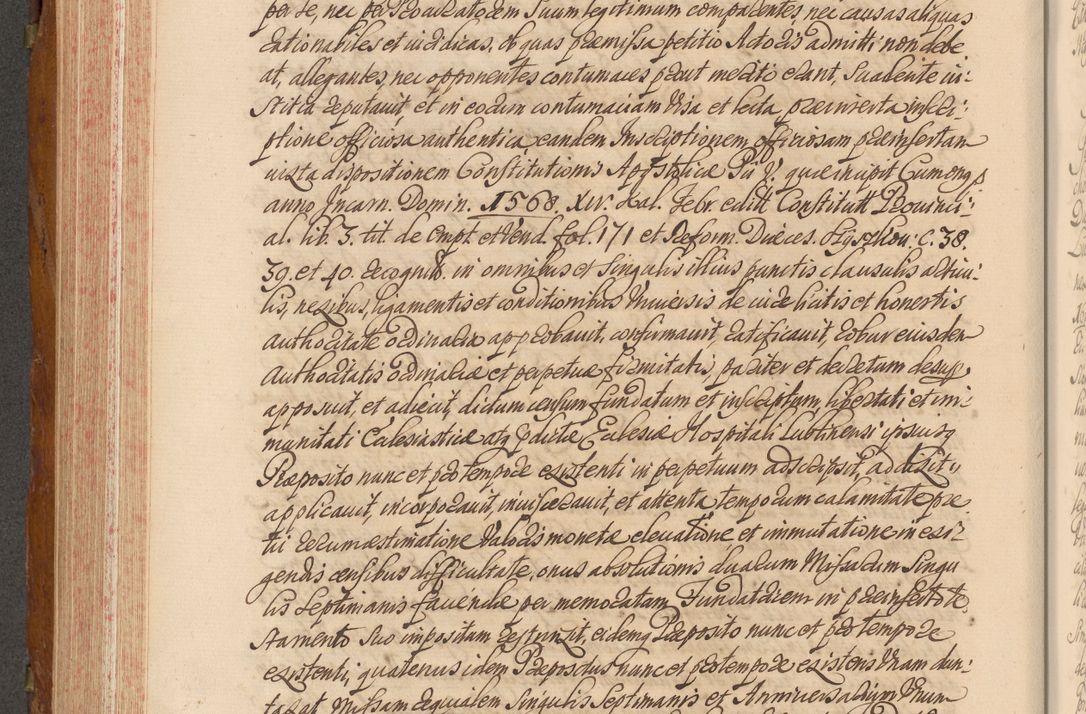 per se, nec per Procuratorem suum legitimum comparentes, nec causas aliquas
rationabiles et iuridicas, ob quas præmissa petitio Actoris admitti non debe
at, allegantes, nec opponentes contumaces prout meriti erant, suadente iu:
stitia reputavit, et in eorum contumaciam visa et lecta præinserta inscri:
ptione officiosa authentica, eandem Inscriptionem officiosam præinsertam
iuxta dispositionem Constitutionis Apostolicæ Pii V. quæ incipit Cum onus
anno Incarn. Domin. 1568. XIV. Kal. Febr. edit Constitutt Provinci:
al. lib. 3. tit. de Empt. et Vend. fol. 171 et Reform. Diæces. Szyszkow: C. 38.
39. et 40. recognit. in omnibus et singulis illius punctis clausulis articu:
lis, nexibus, ligamentis et conditionibus universis de iure licitis et honestis
authoritate ordinaria approbavit, confirmavit, ratificavit, robur eiusdem
authoritatis ordinariæ et perpetuæ firmitatis, pariter et decretum desup
apposuit, et adiecit, dictum censum fundatum et inscriptum, libertati et im:
munitati Ecclesiasticæ atq prædictæ Ecclesiæ Hospitali Lublinensi ipsiusq
Præposito nunc et pro tempore existenti in perpetuum adscripsit, addixit,
applicavit, incorporavit, inuisceravit, et attenta temporum calamitate pre
tii rerum æstimatione valoris monetæ elevatione et immutatione in exi:
gendis censibus difficultate, onus absolutionis duarum Missarum singu
lis septimanis favende per memoratam Fundatricem in præinserto te:
stamento suo impositam restrinxit, eidemq Præposito nunc et pro tempore
existenti, quatenus idem Præpositus nunc et pro tempore existens unam dun:
taxat Missam Requialem singulis septimanis et Anniversarium unum